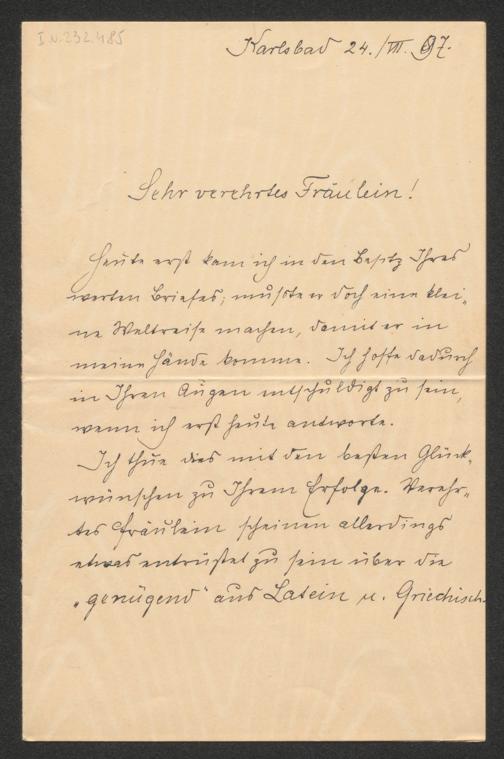 I.N. 232.485
Karlsbad 24./VII. 97.
Sehr verehrtes Fräulein!
Heute erst kam ich in den Besitz Ihres
werten Briefes; mußte er doch eine klei-
ne Weltreise machen, damit er in
meine Hände komme. Ich hoffe dadurch
in Ihren Augen entschuldigt zu sein,
wenn ich erst heute antworte.
Ich thue dies mit den besten Glück-
wünschen zu Ihrem Erfolge. Verehr-
tes Fräulein scheinen allerdings
etwas entrüstet zu sein über die
„genügend" aus Latein u. Griechisch.